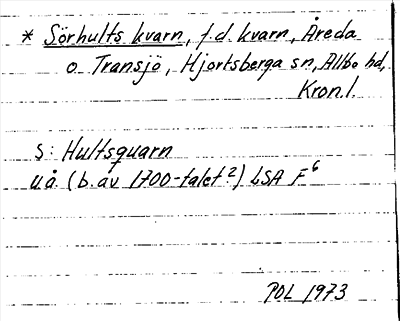 * Sörhults kvarn, f.d. kvarn, Åreda
o. Transjö, Hjortsberga sn, Allbo hd,
Kron.l.
s: Hultsquarn
u.å. (b. av 1700-talet?) LSA F6
POL 1973